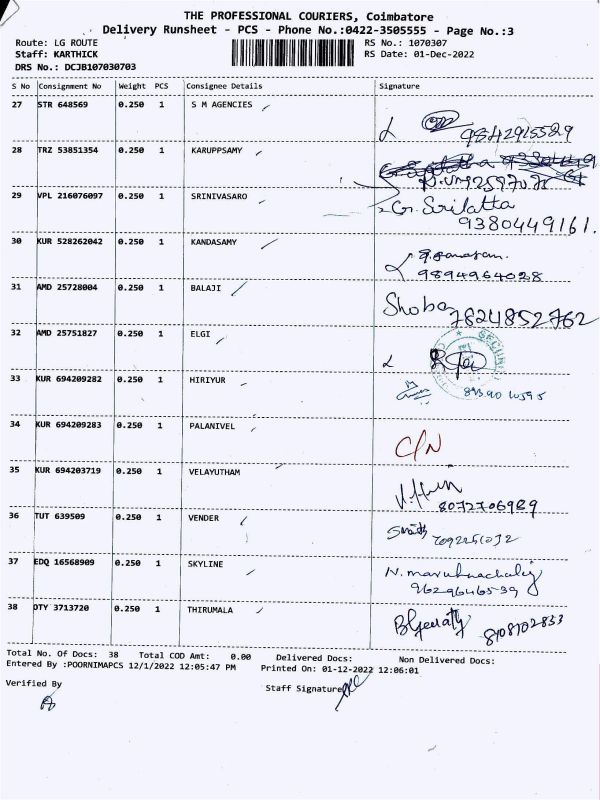 THE PROFESSIONAL COURIERS, Coimbatore
Delivery Runsheet - PCS - Phone No.:0422-3505555 - Page No.:3
Route: LG ROUTE RS No.: 1070307
Staff: KARTHICK RS Date: 01-Dec-2022
DRS No.: DCJB107030703
S No Consignment No Weight PCS Consignee Details Signature
27 STR 648569 0.250 1 S M AGENCIES
9842915589
28 TRZ 53851354 0.250 1 KARUPPSAMY
29 VPL 216076097 0.250 1 SRINIVASARO
G. Srilatta
9380449161.
30 KUR 528262042 0.250 1 KANDASAMY
9894964028
31 AMD 25728004 0.250 1 BALAJI
Shoba 7824852762
32 AMD 25751827 0.250 1 ELGI
SECURIT
33 KUR 694209282 0.250 1 HIRIYUR
34 KUR 694209283 0.250 1 PALANIVEL
C/N
35 KUR 694203719 0.250 1 VELAYUTHAM
8072706989
36 TUT 639509 0.250 1 VENDER
37 EDQ 16568909 0.250 1 SKYLINE
9629646539
38 OTY 3713720 0.250 1 THIRUMALA
8108702833
Total No. Of Docs: 38 Total COD Amt: 0.00 Delivered Docs: Non Delivered Docs:
Entered By :POORNIMAPCS 12/1/2022 12:05:47 PM Printed On: 01-12-2022 12:06:01
Verified By Staff Signature